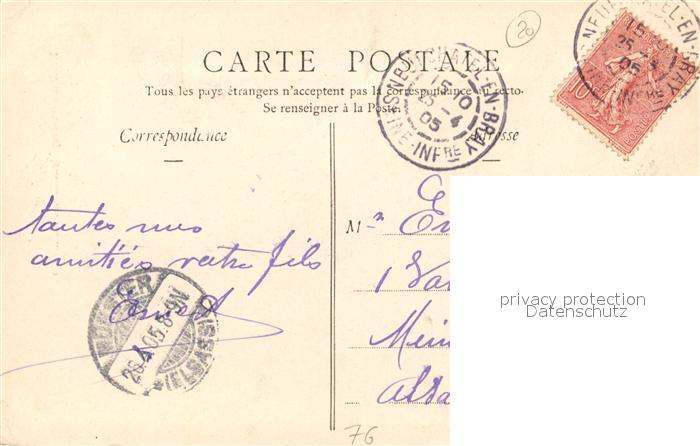 20
CARTE POSTALE
Tous les pays étrangers n'acceptent pas la correspondance au recto.
Se renseigner à la Poste.
Correspondance
Adresse
NEUFCHATEL-EN-BRAY
15 10
25 -4
05
SEINE-INFRE
toutes mes
amitiés votre fils
Ernest
MUNSTER
26.4.05.8-9N
(ELSASS)
M
1
Mein
privacy protection
Datenschutz
76